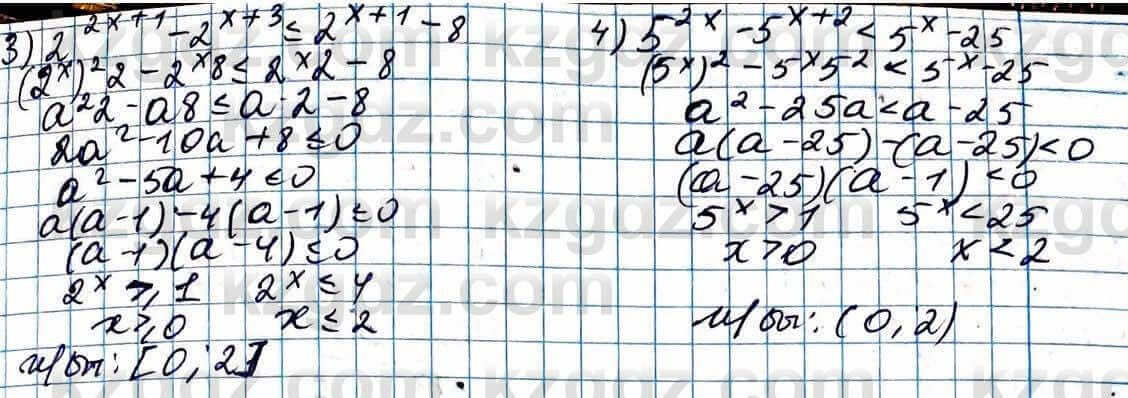 3) 2^{2x+1} - 2^{x+3} ≤ 2^{x+1} - 8
(2^x)^2 2 - 2^x 8 ≤ 2^x 2 - 8
a^2 2 - a8 ≤ a·2 - 8
2a^2 - 10a + 8 ≤ 0
a^2 - 5a + 4 ≤ 0
a(a-1) - 4(a-1) ≤ 0
(a-1)(a-4) ≤ 0
2^x ≥ 1 2^x ≤ 4
x ≥ 0 x ≤ 2
ш/ы: [0; 2]
4) 5^{2x} - 5^{x+2} < 5^x - 25
(5^x)^2 - 5^x 5^2 < 5^x - 25
a^2 - 25a < a - 25
a(a-25) - (a-25) < 0
(a-25)(a-1) < 0
5^x > 1 5^x < 25
x > 0 x < 2
ш/ы: (0; 2)
kzgdz.com